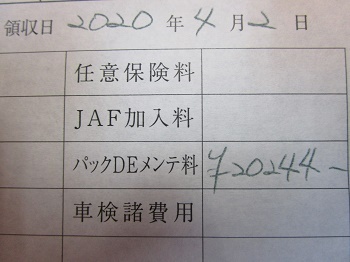 領収日 2020 年 4 月 2 日
任意保険料
JAF加入料
パックDEメンテ料 ¥20244-
車検諸費用